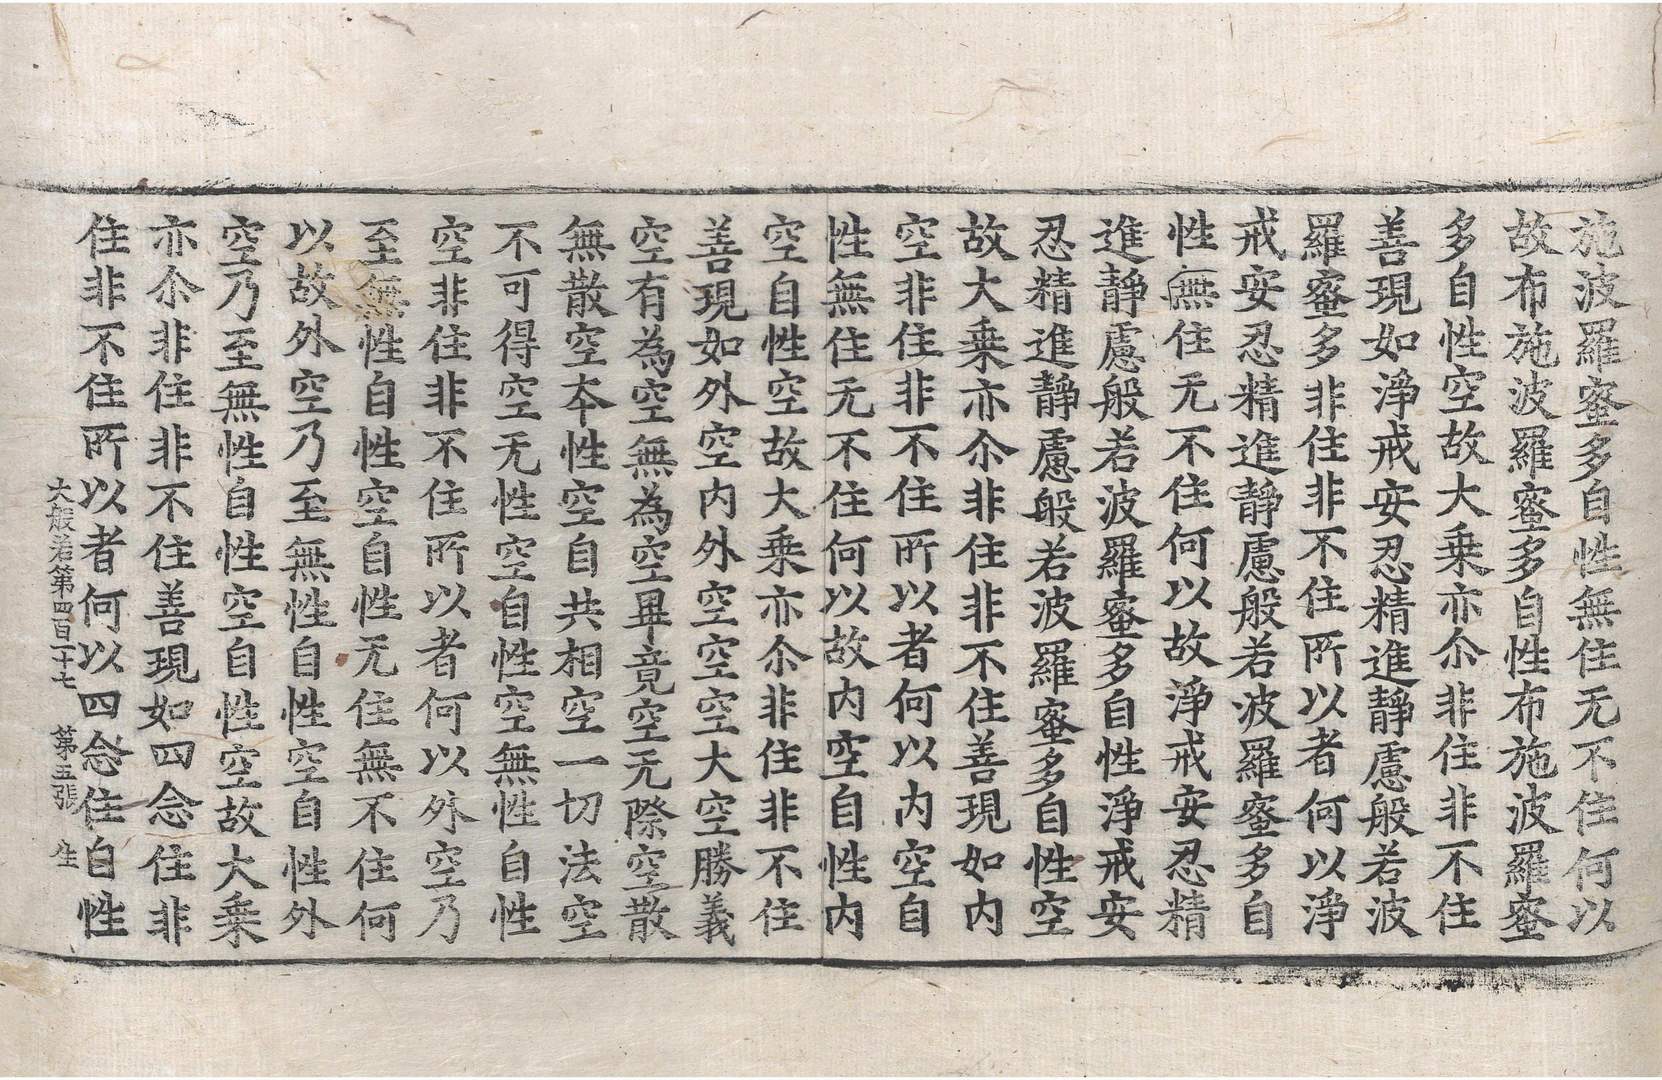 施波羅蜜多自性無住无不住何以
故布施波羅蜜多自性布施波羅蜜
多自性空故大乗亦尒非住非不住
善現如淨戒安忍精進靜慮般若波
羅蜜多非住非不住所以者何以淨
戒安忍精進靜慮般若波羅蜜多自
性無住无不住何以故淨戒安忍精
進靜慮般若波羅蜜多自性淨戒安
忍精進靜慮般若波羅蜜多自性空
故大乗亦尒非住非不住善現如内
空非住非不住所以者何以内空自
性無住无不住何以故内空自性内
空自性空故大乗亦尒非住非不住
善現如外空内外空空空大空勝義
空有為空無為空畢竟空无際空散
無散空本性空自共相空一切法空
不可得空无性空自性空無性自性
空非住非不住所以者何以外空乃
至無性自性空自性无住無不住何
以故外空乃至無性自性空自性外
空乃至無性自性空自性空故大乗
亦尒非住非不住善現如四念住非
住非不住所以者何以四念住自性
大般若第四百一十七 第五張 生